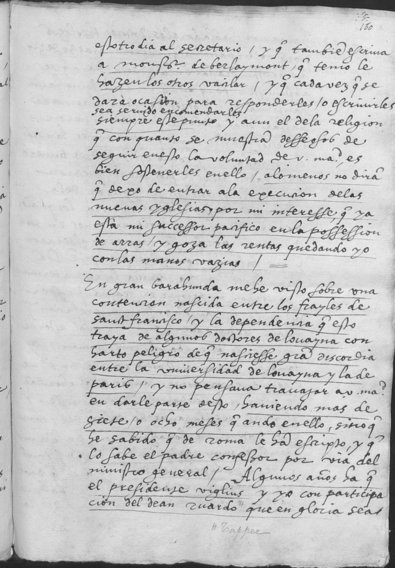 160
estotro dia al secretario, y q̃ tambiẽ escriua
a monsr̃ de berlaymont, q̃ temo le
hazen los otros vacilar, y q̃ cada vez q̃ se
dara ocasiõn para responderles, o escriuirles
sea seruido encomendarles
siempre este punto y aun el dela religion
q̃ con quanto se muestrã desseosos de
seguir en esto la voluntad de v. mag.d es
bien sostenerles en ello, alomenos no dirã
q̃ dexo de entrar ala execucion delas
nueuas yglesias por mi interesse, q̃ ya
està mi successor pacifico en la possession
de arras, y goza las rentas quedando yo
con las manos vazias /
En gran barahunda me he visto sobre vna
contencion nascida entre los frayles de
sant francisco, y la dependencia q̃ esto
traya de algunos doctores de louayna con
harto peligro de q̃ nasciesse grã discordia
entre la vniuersidad de louayna y la de
paris, y no pensaua trauajar a v. mag.d
en darle parte desto, hauiendo mas de
siete, o ocho meses q̃ ando en ello, sino q̃
he sabido q̃ de roma le hã escripto, y q̃
lo sabe el padre confessor por via del
ministro general / Algunos años ha q̃
el presidente viglius y yo con participa
cion del dean ruardo que en gloria sea
Tapper